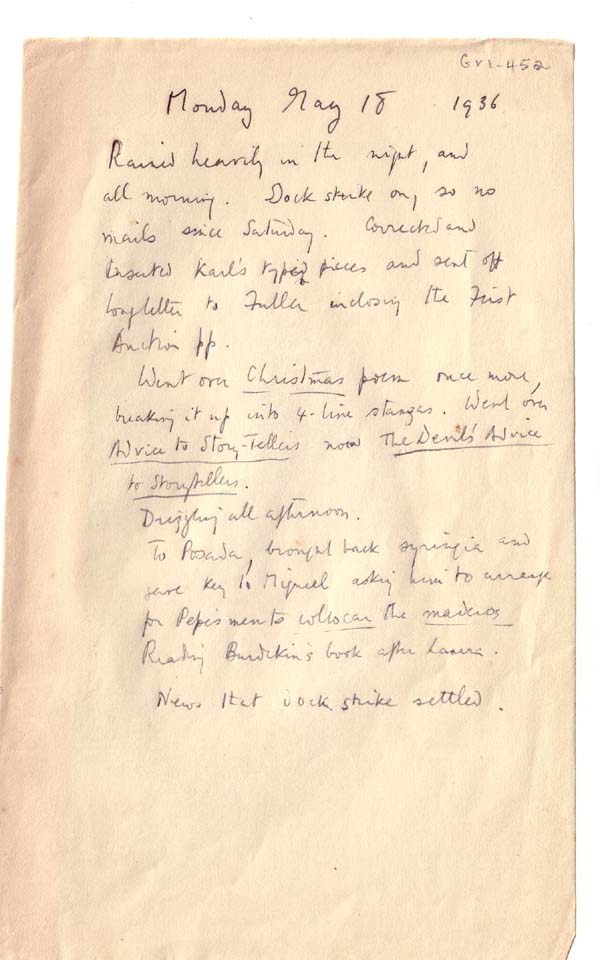 GV1-452
Monday May 18 1936
Rained heavily in the night, and
all morning. Dock strike on, so no
mails since Saturday. Corrected and
inserted Karl's typed pieces and sent off
long letter to Fuller inclosing the First
Auction pp.
Went over Christmas poem once more,
breaking it up into 4-line stanzas. Went over
Advice to Story-Tellers now The Devil's Advice
to Storytellers.
Drizzling all afternoon.
To Posada, brought back syringia and
gave key to Miguel asking him to arrange
for Pepe's men to collocar the maderos
Reading Burdekin's book after
News that dock strike settled.